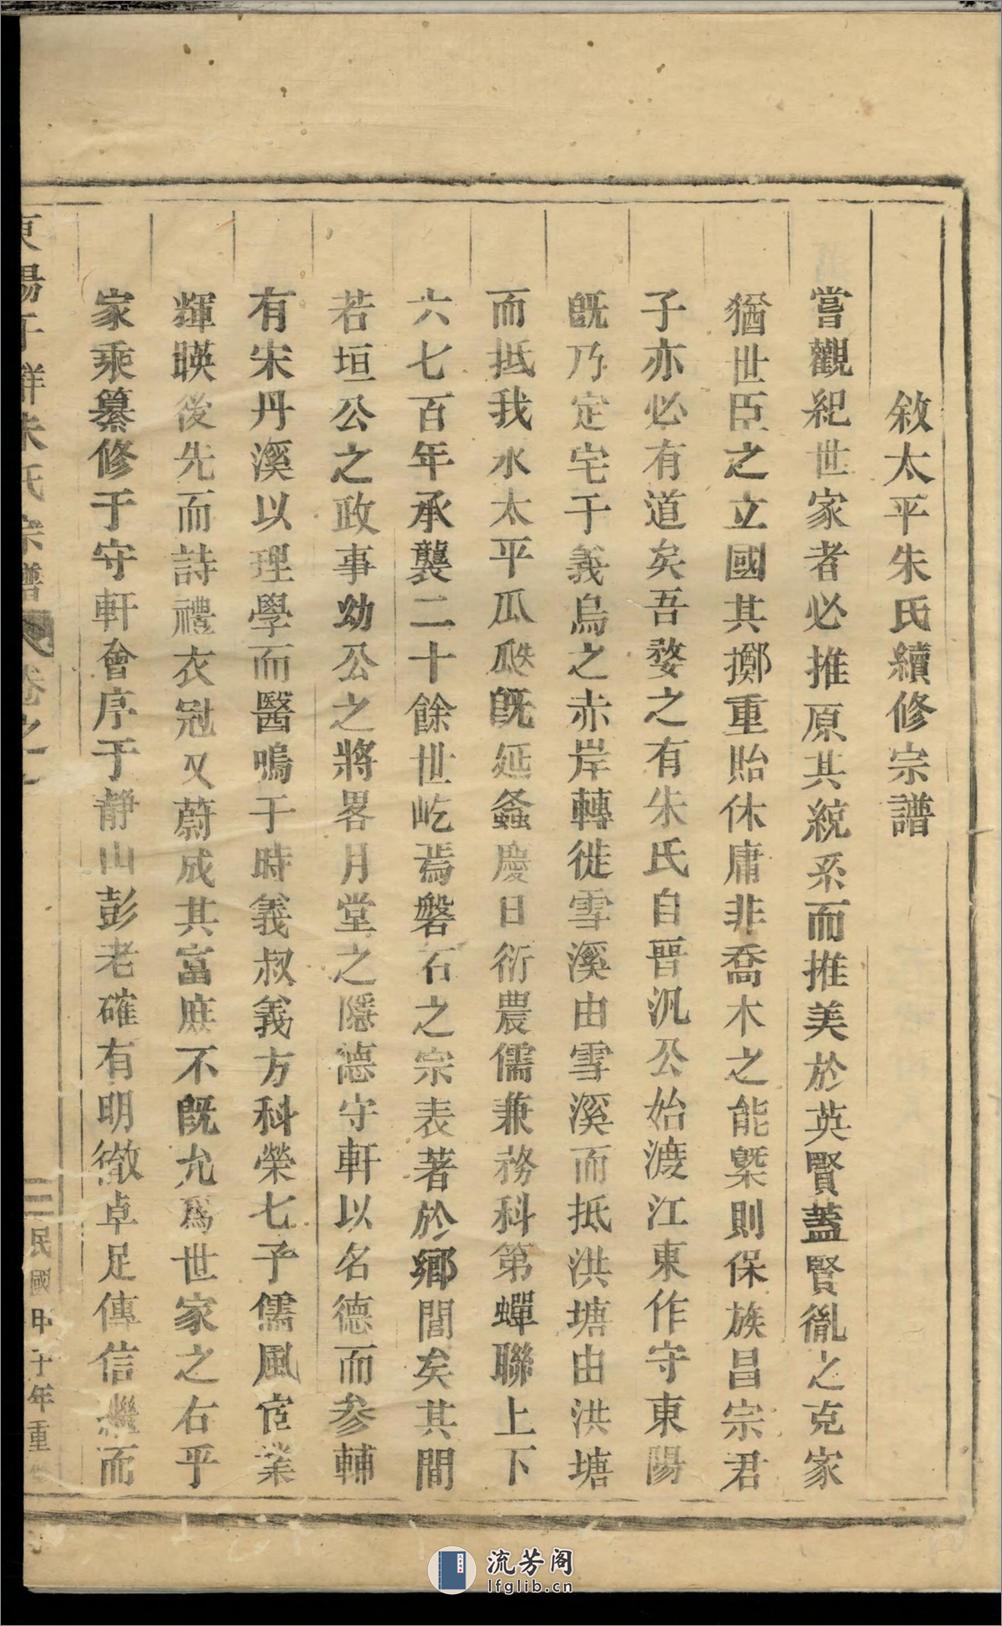 敘太平朱氏續修宗譜
嘗觀紀世家者必推原其統系而推美於英賢蓋賢胤之克家
猶世臣之立國其擲重貽休庸非喬木之能槩則保族昌宗君
子亦必有道矣吾婺之有朱氏自晉汎公始渡江東作守東陽
旣乃定宅于義烏之赤岸轉徙雪溪由雪溪而抵洪塘由洪塘
而抵我永太平瓜瓞旣延螽慶日衍農儒兼務科第蟬聯上下
六七百年承襲二十餘世屹焉磐石之宗表著於鄉閭矣其間
若垣公之政事幼公之將畧月堂之隱德守軒以名德而參輔
有宋丹溪以理學而醫鳴于時義叔義方科榮七子儒風宦業
輝暎後先而詩禮衣冠又蔚成其富庶不旣允爲世家之右乎
家乘纂修于守軒會序于靜山彭老確有明徵卓足傳信繼而
東陽千祥朱氏宗譜 卷之一
二 民國甲子年重修
流芳阁
lfglib.cn